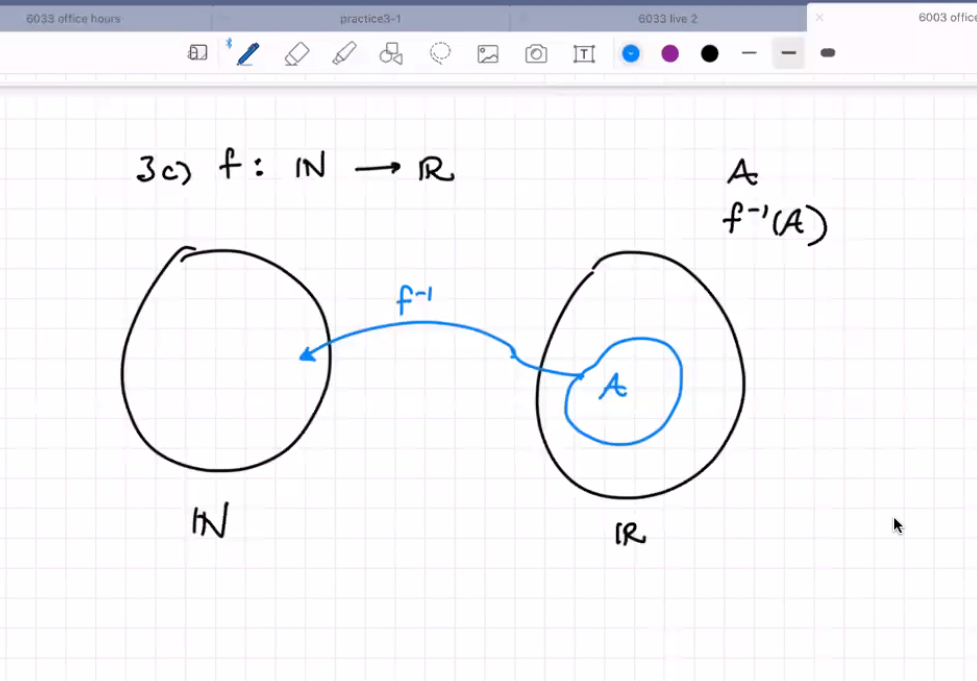 6033 office hours
practice3-1
6033 live 2
6003 office
T
3c) f : ℕ → ℝ
A
f⁻¹(A)
f⁻¹
A
ℕ
ℝ